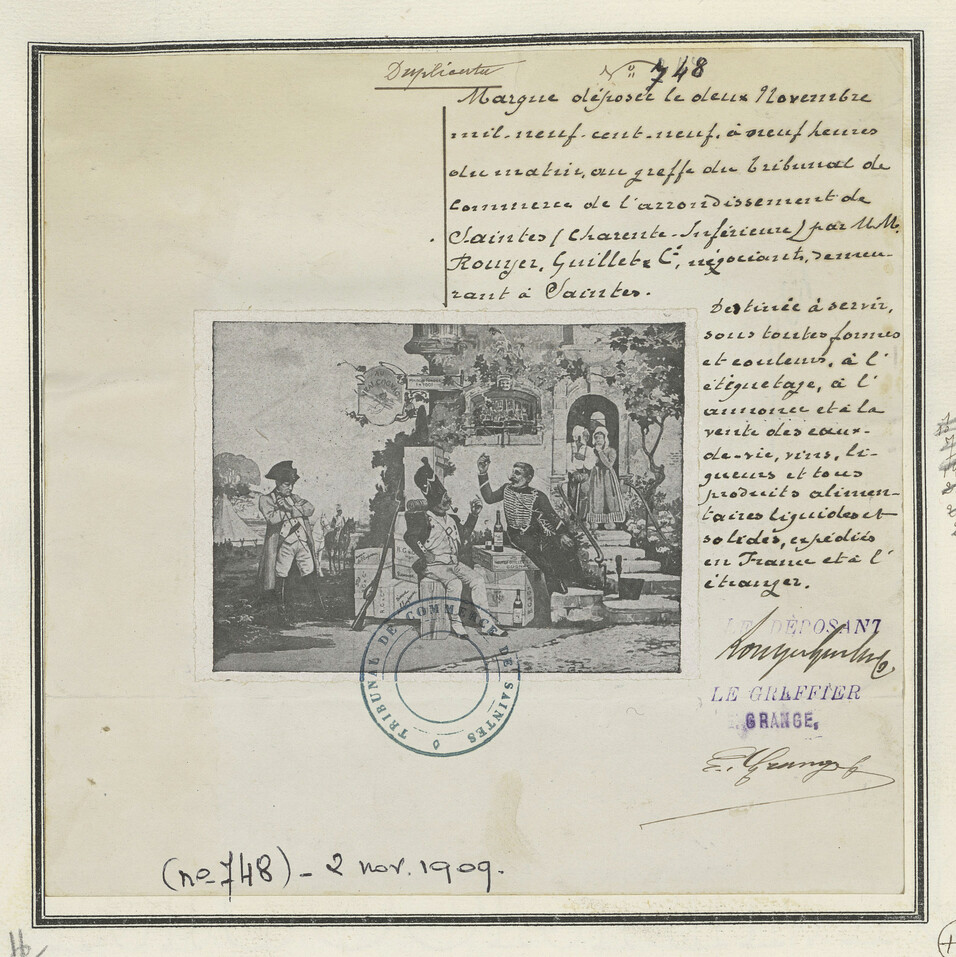 Duplicata
No 748
Marque déposée le deux Novembre
mil-neuf-cent-neuf, à neuf heures
du matin, au greffe du tribunal de
Commerce de l'arrondissement de
Saintes (Charente-Inférieure) par M.M.
Rouyer, Guillet & Cie, négociants, demeu-
rant à Saintes.
Destinée à servir,
sous toutes formes
et couleurs, à l'
étiquetage, à l'
annonce et à la
vente des eaux-
de-vie, vins, li-
queurs et tous
produits alimen-
taires liquides et
solides, expédiés
en France et à l'
étranger.
TRIBUNAL DE COMMERCE DE SAINTES
LE DÉPOSANT
Rouyer Guillet & Co
LE GREFFIER
GRANGE.
E. Grange
(no 748) - 2 nov. 1909.